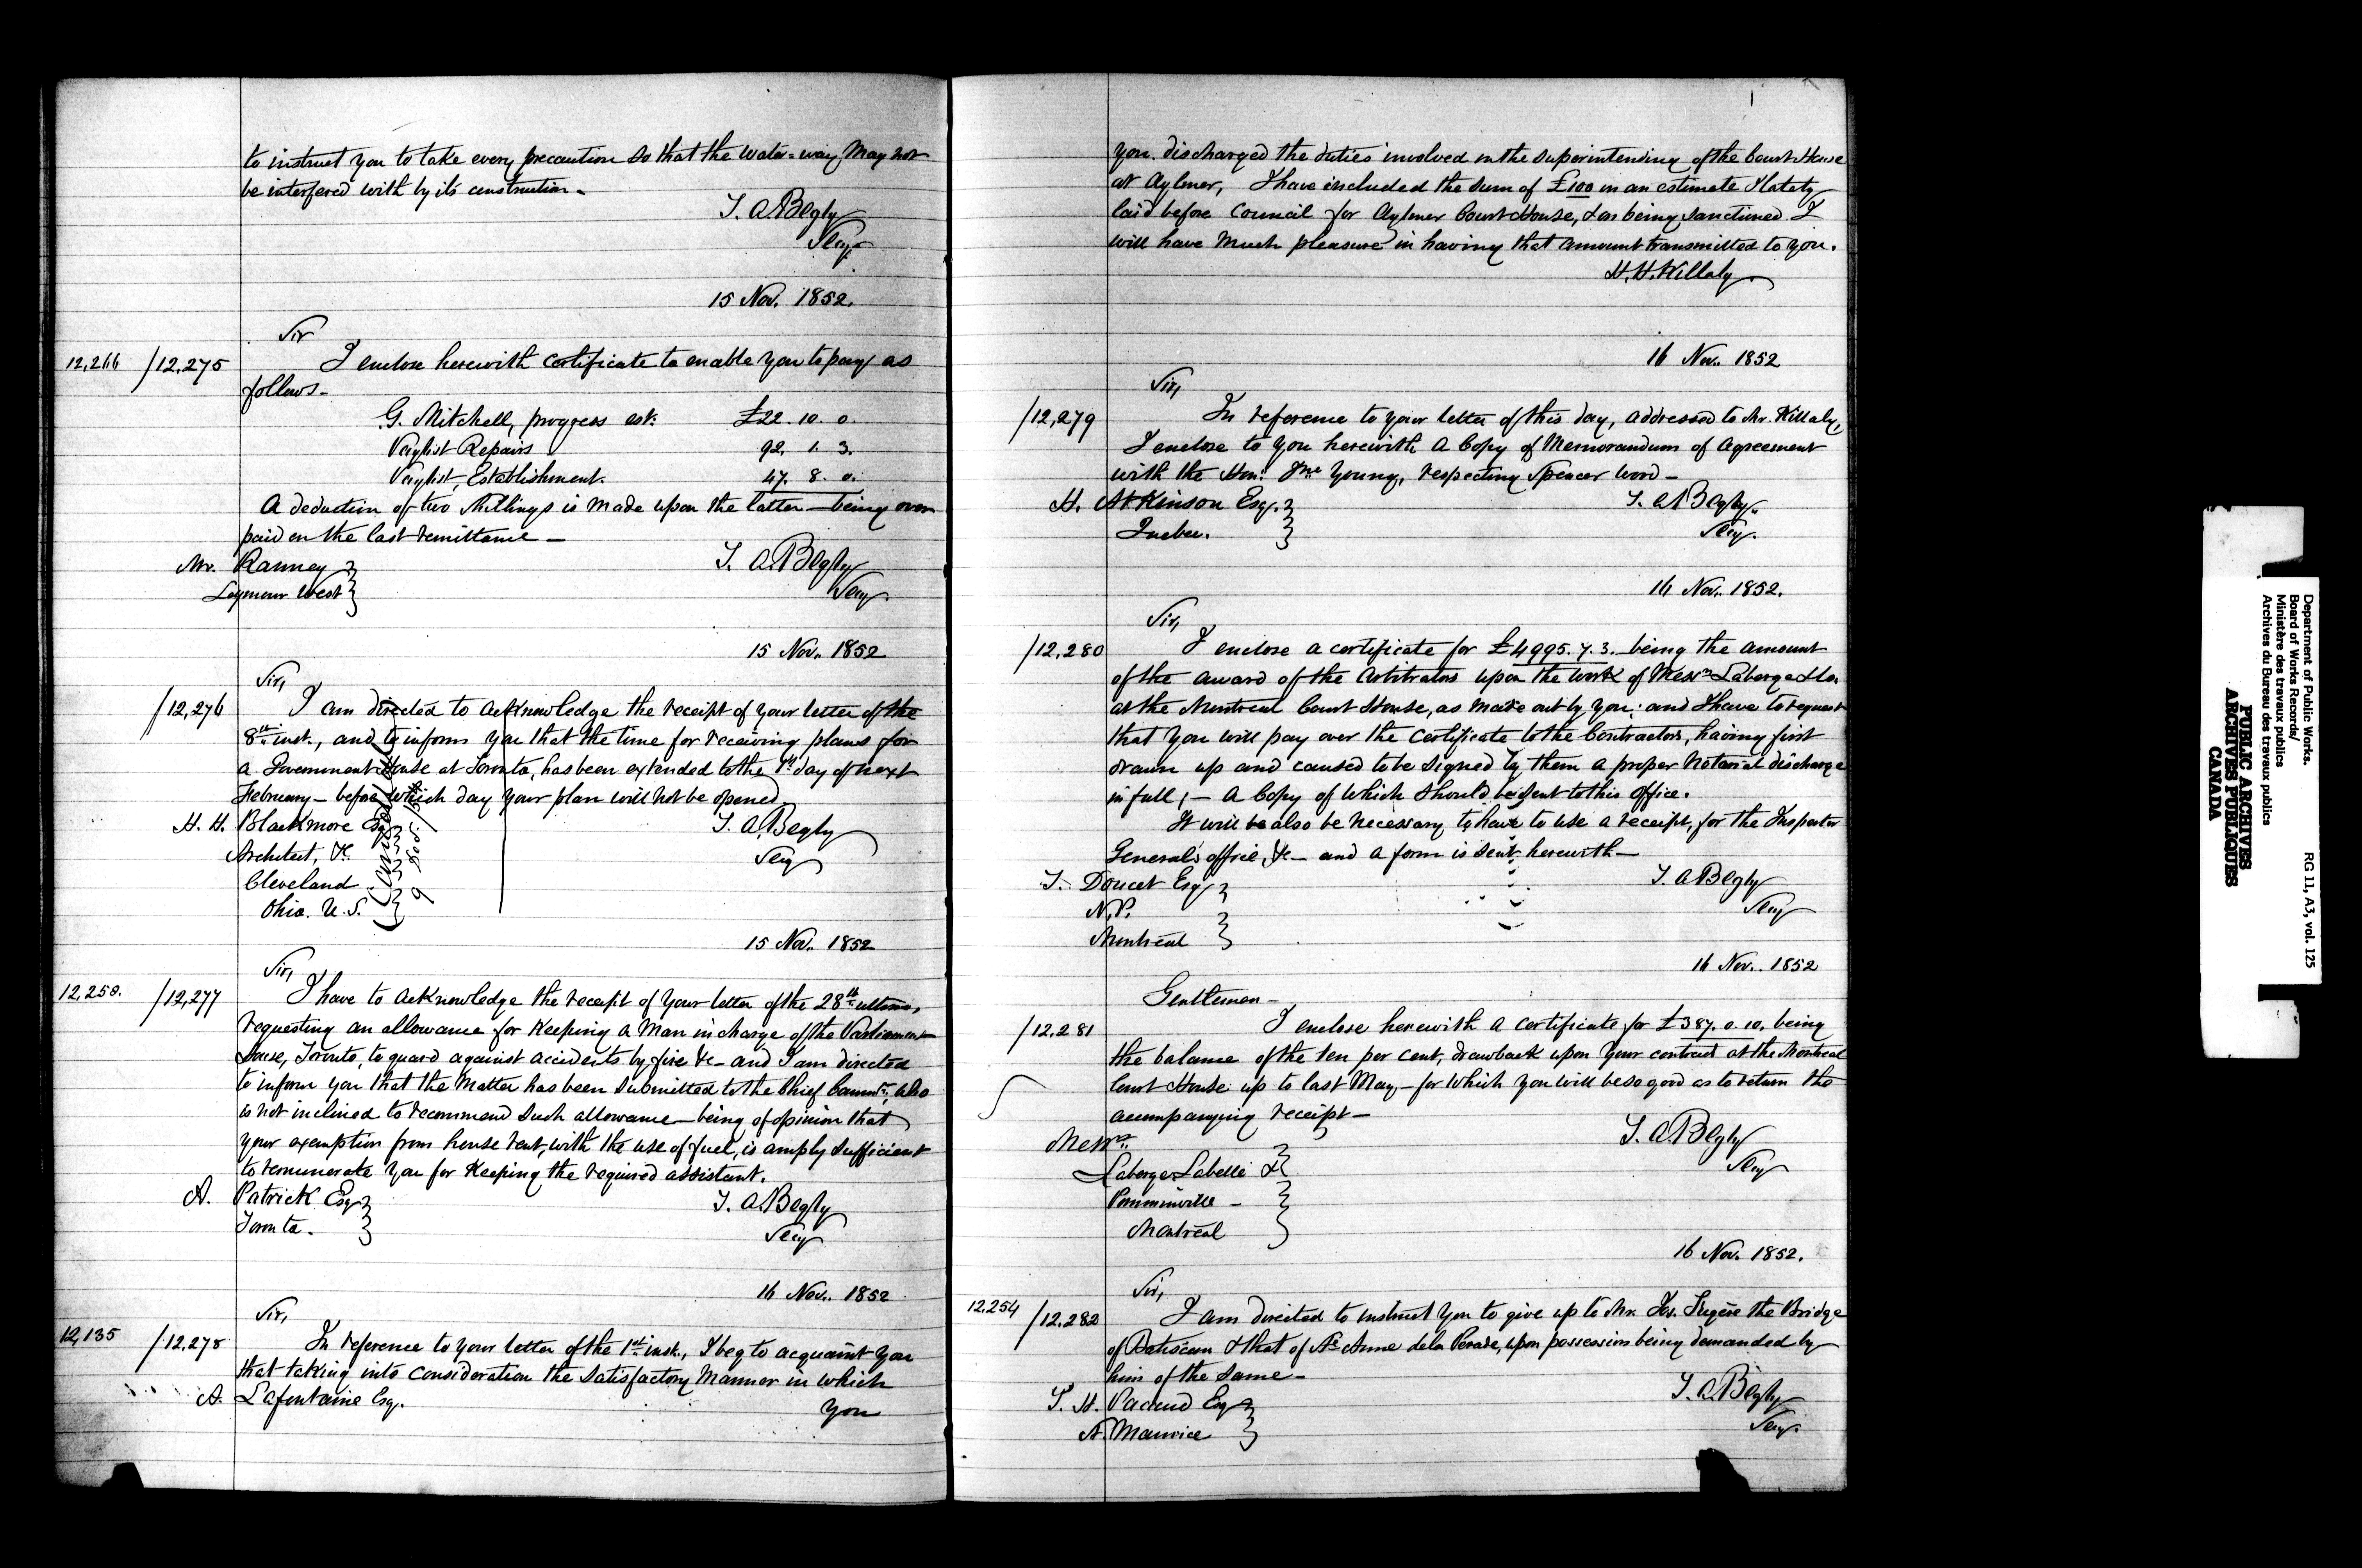 to instruct you to take every precaution so that the Water-way May not
be interfered with by its construction.
T. A. Begly
Secy.
15 Nov. 1852.
Sir
12,266 /12,275 I enclose herewith certificate to enable you to pay as
follows-
G. Mitchell, progress est. £22. 10. 0.
Paylist Repairs 92. 1. 3.
Paylist, Establishment. 47. 8. 0.
A deduction of two Shillings is made upon the latter - being over
paid on the last remittance -
Mr. Ranney
Seymour West
T. A. Begly
Secy.
15 Nov. 1852
Sir,
/12,276 I am directed to acknowledge the receipt of your letter of the
8th inst., and to inform you that the time for receiving plans for
a Government House at Toronto, has been extended to the 1st day of next
February - before which day your plan will not be opened.
H. H. Blackmore Esq
Architect, &c.
Cleveland
Ohio. U.S.
T. A. Begly
Secy
15 Nov. 1852
Sir,
12,258. /12,277 I have to acknowledge the receipt of your letter of the 28th ultimo,
requesting an allowance for keeping a Man in charge of the Parliament
House, Toronto, to guard against accidents by fire &c - and I am directed
to inform you that the Matter has been submitted to the Chief Commr., who
is not inclined to recommend such allowance - being of opinion that
your exemption from house rent, with the use of fuel, is amply sufficient
to remunerate you for keeping the required assistant.
A. Patrick Esq
Toronto.
T. A. Begly
Secy
16 Nov. 1852
Sir,
12,135 /12,278 In reference to your letter of the 1st inst., I beg to acquaint you
that taking into consideration the satisfactory Manner in which
A. Lafontaine Esq.
you
you discharged the duties involved in the superintending of the Court House
at Aylmer, I have included the sum of £100 in an estimate I lately
laid before Council for Aylmer Court House, & on being sanctioned I
will have much pleasure in having that amount transmitted to you.
H. H. Killaly
16 Nov. 1852
Sir,
/12,279 In reference to your letter of this day, addressed to Mr. Killaly,
I enclose to you herewith a Copy of Memorandum of Agreement
with the Honl. Jno Young, respecting Spencer Wood -
H. Atkinson Esq.
Quebec.
T. A. Begly.
Secy.
16 Nov. 1852.
Sir,
/12,280 I enclose a certificate for £4995. 7. 3. being the amount
of the award of the Arbitrators upon the work of Messrs Laberge & Co.
at the Montreal Court House, as made out by you; and I have to request
that you will pay over the certificate to the Contractors, having first
drawn up and caused to be signed by them a proper Notarial discharge
in full, - a Copy of which should be sent to this office.
It will be also be necessary to have to use a receipt, for the Inspector
General's office, &c - and a form is sent herewith -
T. Doucet Esq
N.P.
Montreal
T. A. Begly
Secy
16 Nov. 1852
Gentlemen -
/12,281 I enclose herewith a certificate for £387. 0. 10. being
the balance of the ten per cent, drawback upon your contract at the Montreal
Court House up to last May - for which you will be so good as to return the
accompanying receipt -
Messrs.
Laberge Labelle &
Pomminville -
Montreal
T. A. Begly
Secy
16 Nov. 1852.
Sir,
12,254 /12,282 I am directed to instruct you to give up to Mr. the Bridge
of Batiscan & that of Ste Anne de la Perade, upon possession being demanded by
him of the same -
T. H. Pacaud Esq
St. Maurice
T. A. Begly
Secy.
Department of Public Works.
Board of Works Records/
Ministère des travaux publics
Archives du Bureau des travaux publics
RG 11, A3, vol. 125
PUBLIC ARCHIVES
ARCHIVES PUBLIQUES
CANADA